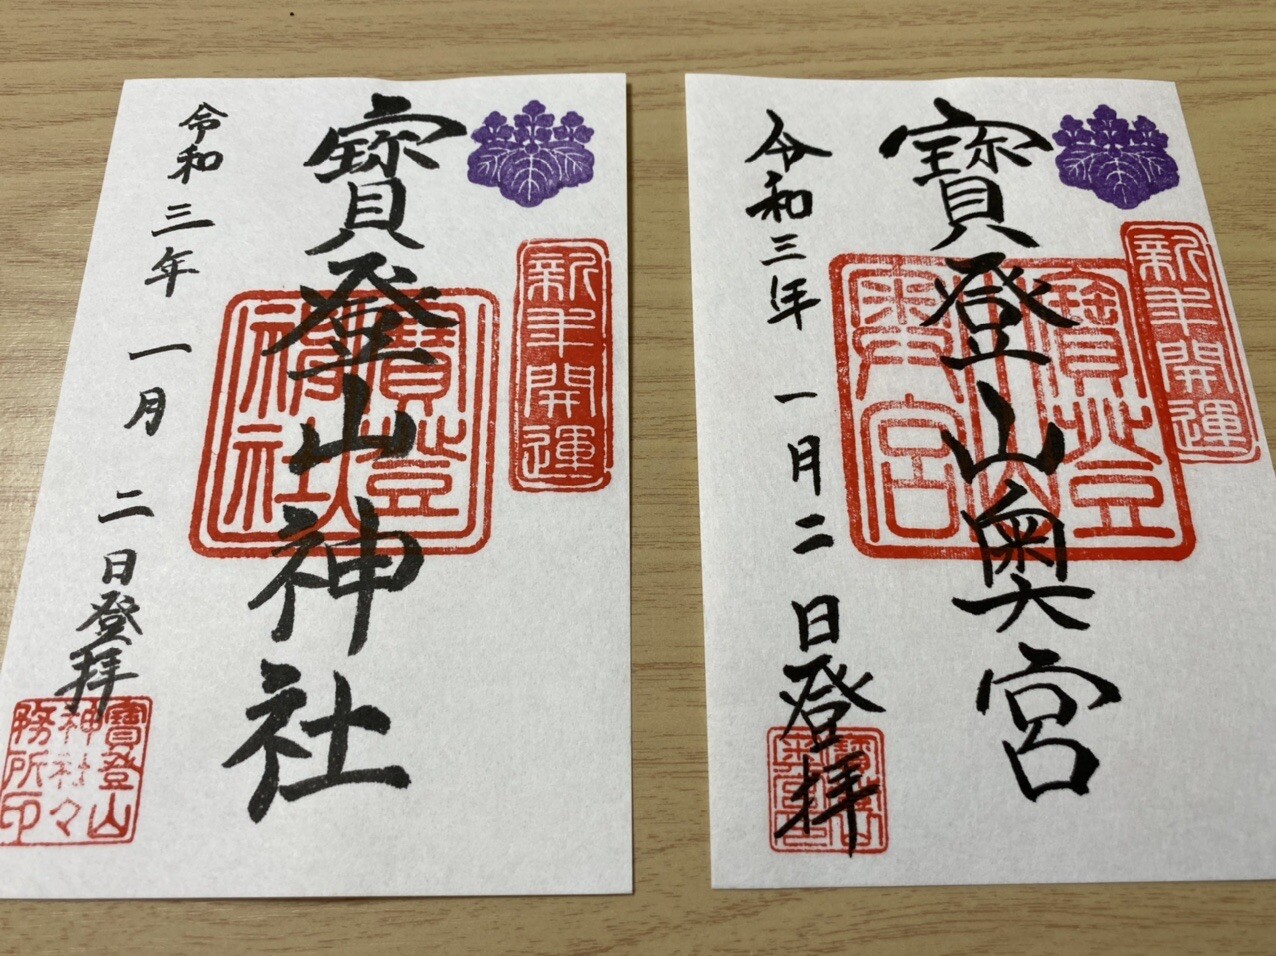 新年開運
寶登山神社
寶登山神社
令和三年一月二日登拝
寶登山
神社々
務所印
新年開運
寶登山奥宮
寶登山奥宮
令和三年一月二日登拝